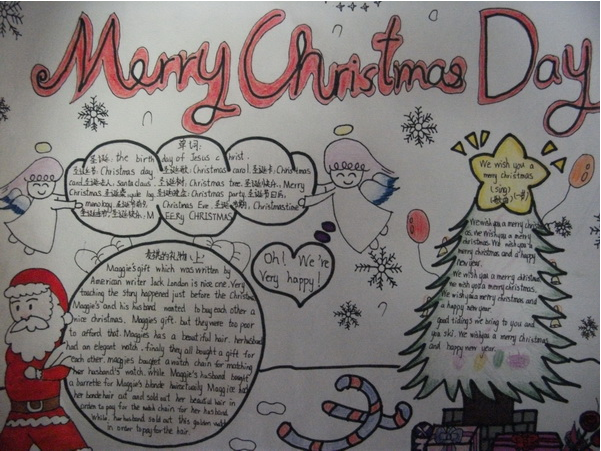 Merry Christmas Day
单词:
圣诞: the birth day of Jesus christ.
圣诞节: Christmas day 圣诞歌: Christmas carol. 圣诞卡: Christmas
card. 圣诞老人: santa claus. 圣诞树: Christmas tree. 圣诞快乐: Merry
Christmas
Christmas party
Christmas Eve. Christmastime
MEERRY CHRISTMAS
麦琪的礼物 (上)
Maggie's gift which was written by
American writer Jack London is nice one. Very
touching the story happened just before the Christmas
Maggie's and his husband wanted to buy each other a
nice christmas. Maggie's gift. but they were too poor
to afford that. Maggies has a beautiful hair. her husband
had an elegant watch. finaly they all bought a gift for
each other. maggies bought a watch chain for matching
her husband's watch. while Maggie's husband bought
a barrette for Maggie's blonde hair. actually Maggie had
her blonde hair cut and sold out her beautiful hair in
order to pay for the watch chain for her husband
while, her husband sold out this golden watch
in order to pay for the hair.
Oh! We're
Very happy!
We wish you a
merry christmas
(sing)
We wish you a merry christmas
we wish you a merry
christmas And wish you a
merry christmas and a happy
new year.
We wish you a merry christmas
we wish you a merry christmas.
We wish you a merry christmas and
a happy new year
good tidings we bring to you and
you We wish you a merry christmas
and happy new year.